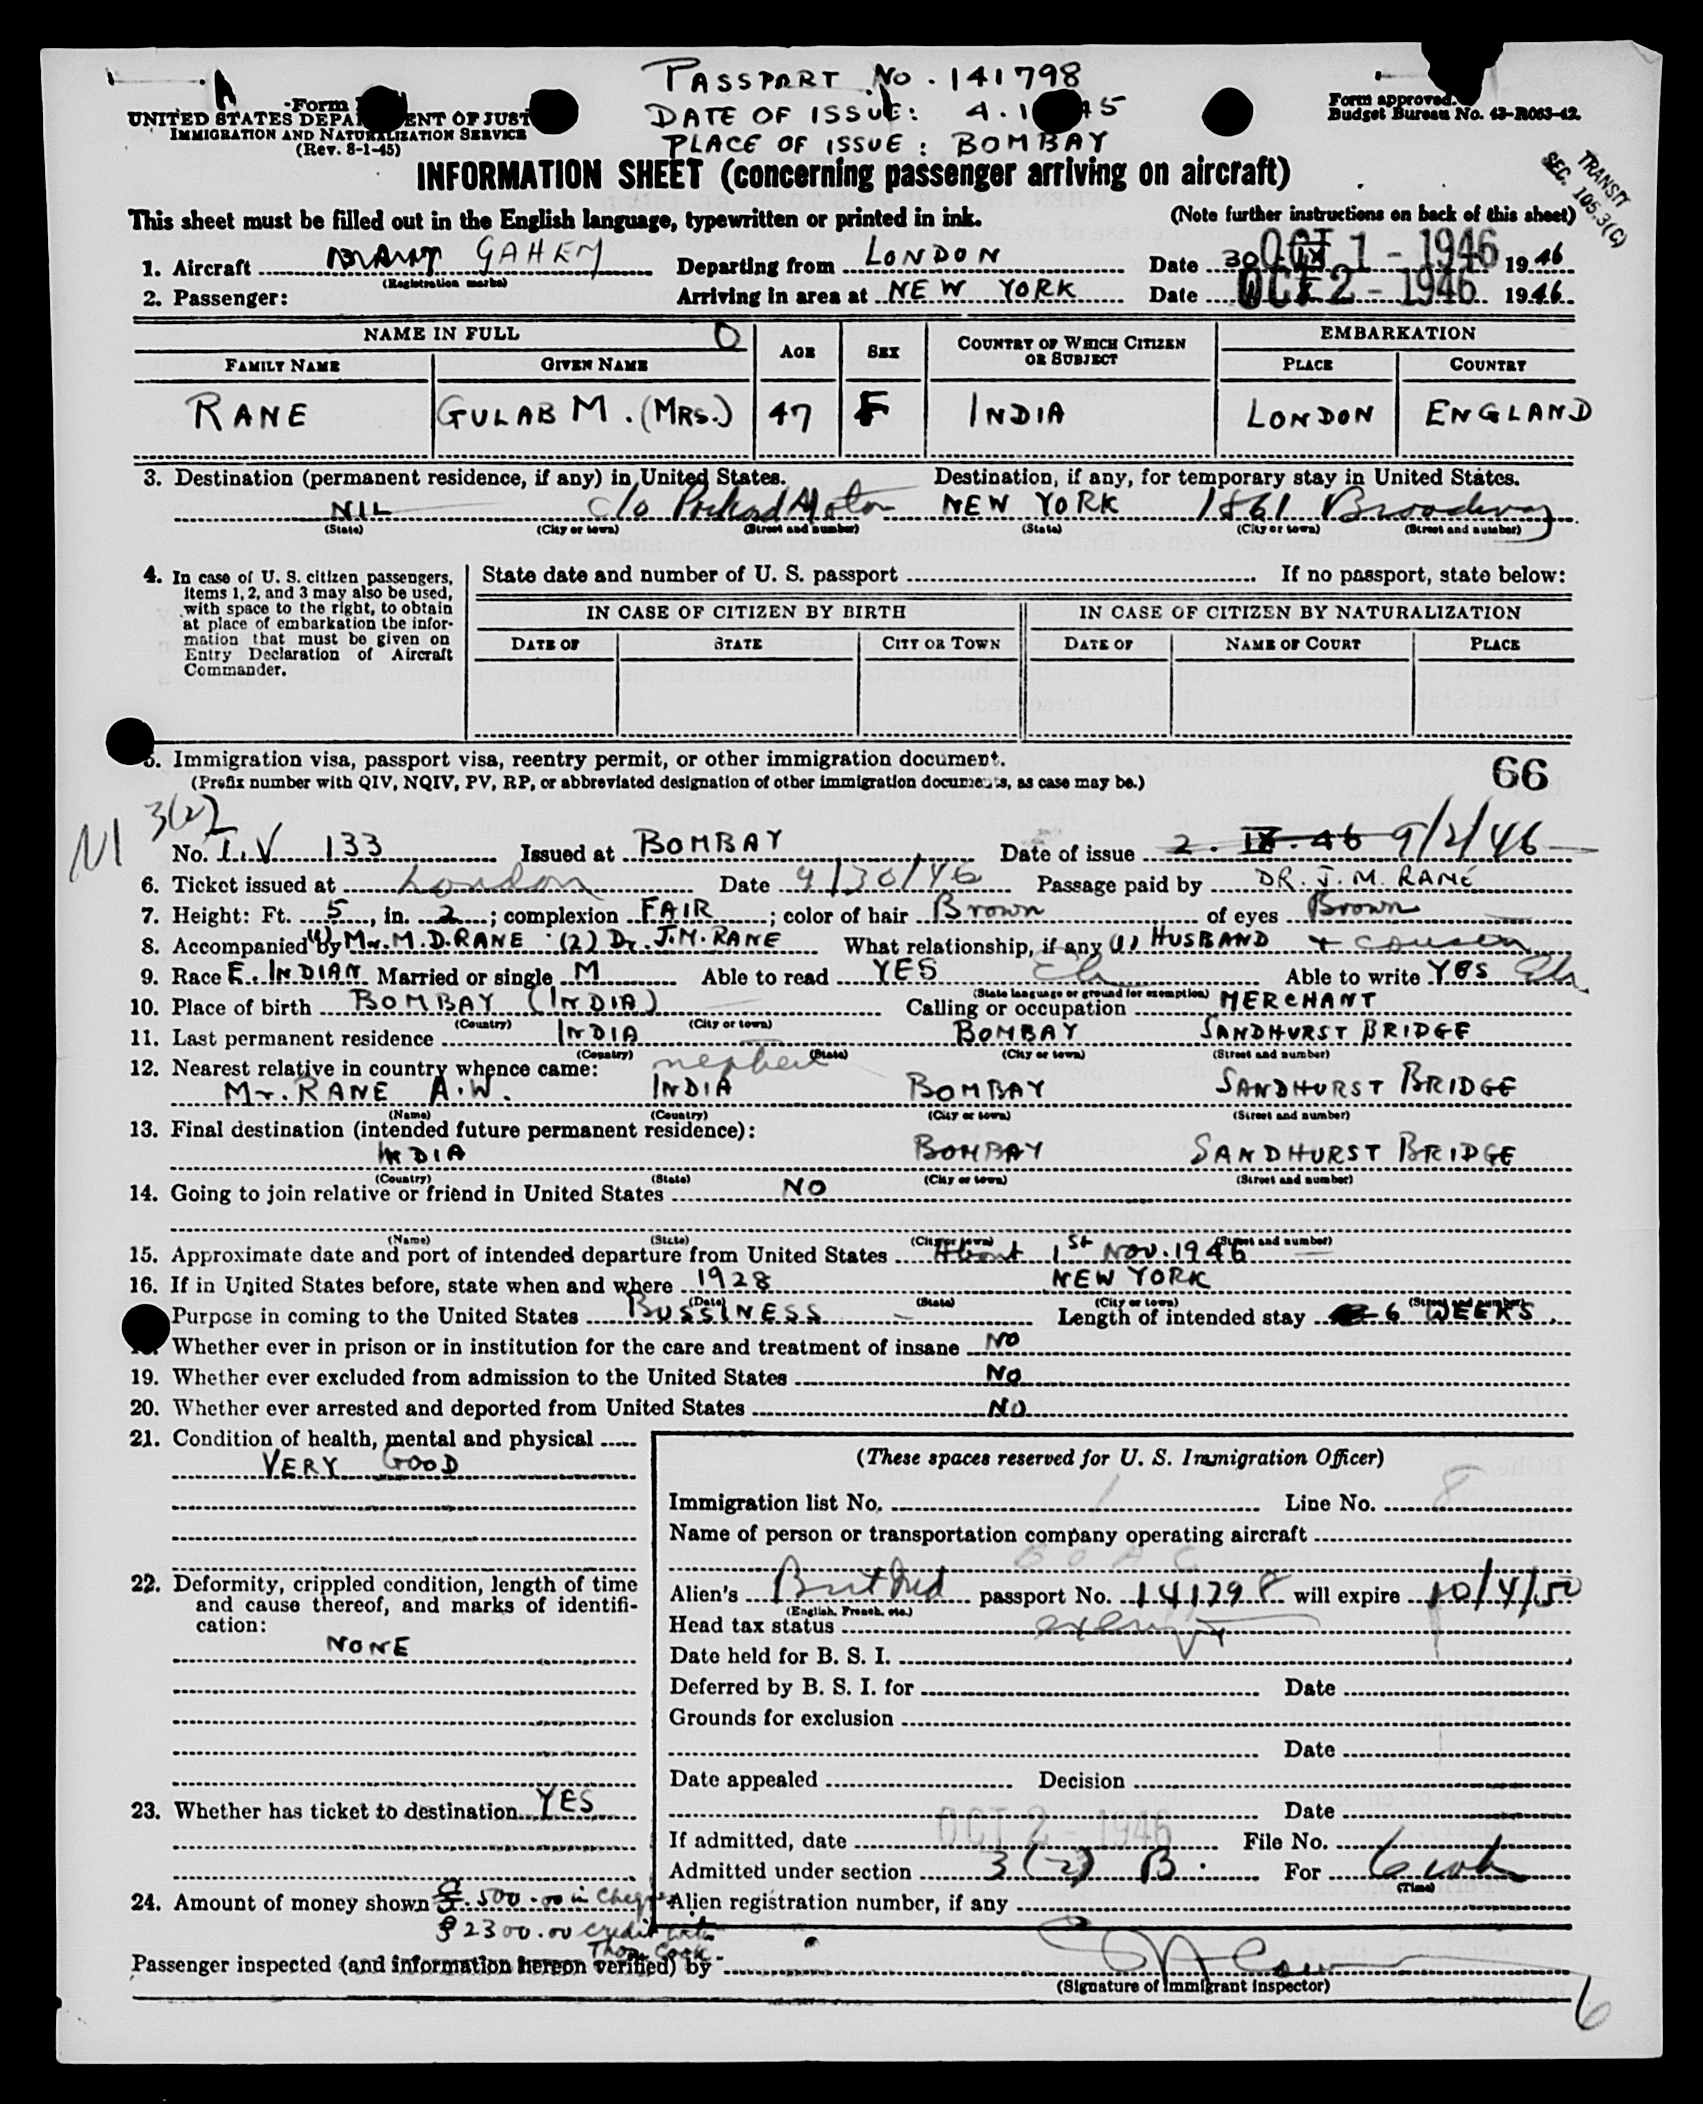 PASSPORT No. 141798
Form
UNITED STATES DEPA ENT OF JUST
DATE OF ISSUE: 4.1 45
Form approved.
Budget Bureau No. 43-R063-42.
IMMIGRATION AND NATURALIZATION SERVICE
(Rev. 8-1-45)
PLACE OF ISSUE: BOMBAY
TRANSIT
SEC. 105.3(C)
INFORMATION SHEET (concerning passenger arriving on aircraft)
This sheet must be filled out in the English language, typewritten or printed in ink. (Note further instructions on back of this sheet)
1. Aircraft GAHEM Departing from LONDON Date 30 OCT 1 - 1946 1946
(Registration marks)
2. Passenger: Arriving in area at NEW YORK Date OCT 2 - 1946 1946
NAME IN FULL AGE SEX COUNTRY OF WHICH CITIZEN OR SUBJECT EMBARKATION
FAMILY NAME GIVEN NAME PLACE COUNTRY
RANE GULAB M. (MRS.) 47 F INDIA LONDON ENGLAND
3. Destination (permanent residence, if any) in United States. Destination, if any, for temporary stay in United States.
NIL c/o Packard Motor NEW YORK 1861 Broadway
(State) (City or town) (Street and number) (State) (City or town) (Street and number)
4. In case of U. S. citizen passengers, items 1, 2, and 3 may also be used, with space to the right, to obtain at place of embarkation the information that must be given on Entry Declaration of Aircraft Commander.
State date and number of U. S. passport If no passport, state below:
IN CASE OF CITIZEN BY BIRTH IN CASE OF CITIZEN BY NATURALIZATION
DATE OF STATE CITY OR TOWN DATE OF NAME OF COURT PLACE
5. Immigration visa, passport visa, reentry permit, or other immigration document.
(Prefix number with QIV, NQIV, PV, RP, or abbreviated designation of other immigration documents, as case may be.)
66
3(2)
No. T.V 133 Issued at BOMBAY Date of issue 2. IX. 46 9/2/46
6. Ticket issued at London Date 9/30/46 Passage paid by DR. J. M. RANE
7. Height: Ft. 5, in. 2; complexion FAIR; color of hair Brown of eyes Brown
8. Accompanied by (1) Mr. M. D. RANE (2) Dr. J. M. RANE What relationship, if any (1) HUSBAND + cousin
9. Race E. INDIAN Married or single M Able to read YES Able to write YES
(State language or ground for exemption)
10. Place of birth BOMBAY (INDIA) Calling or occupation MERCHANT
(Country) (City or town)
11. Last permanent residence INDIA BOMBAY SANDHURST BRIDGE
(Country) (State) (City or town) (Street and number)
12. Nearest relative in country whence came: nephew
Mr. RANE A. W. INDIA BOMBAY SANDHURST BRIDGE
(Name) (Country) (City or town) (Street and number)
13. Final destination (intended future permanent residence):
INDIA BOMBAY SANDHURST BRIDGE
(Country) (State) (City or town) (Street and number)
14. Going to join relative or friend in United States NO
(Name) (State) (City or town) (Street and number)
15. Approximate date and port of intended departure from United States About 1st Nov. 1946
16. If in United States before, state when and where 1928 NEW YORK
(Date) (State) (City or town) (Street and number)
Purpose in coming to the United States BUSSINESS Length of intended stay 6 WEEKS
Whether ever in prison or in institution for the care and treatment of insane NO
19. Whether ever excluded from admission to the United States NO
20. Whether ever arrested and deported from United States NO
21. Condition of health, mental and physical
VERY GOOD
22. Deformity, crippled condition, length of time and cause thereof, and marks of identification:
NONE
23. Whether has ticket to destination YES
24. Amount of money shown £.500.00 in Cheques
$2300.00 credit with
Thos. Cook
(These spaces reserved for U. S. Immigration Officer)
Immigration list No. 1 Line No. 8
Name of person or transportation company operating aircraft
B O A C
Alien's passport No. 141798 will expire 10/4/50
(English, French, etc.)
Head tax status exempt
Date held for B. S. I.
Deferred by B. S. I. for Date
Grounds for exclusion
Date
Date appealed Decision
Date
If admitted, date OCT 2 - 1946 File No.
Admitted under section 3 (2) B. For 6 wks
(Time)
Alien registration number, if any
Passenger inspected (and information hereon verified) by
(Signature of immigrant inspector)
6